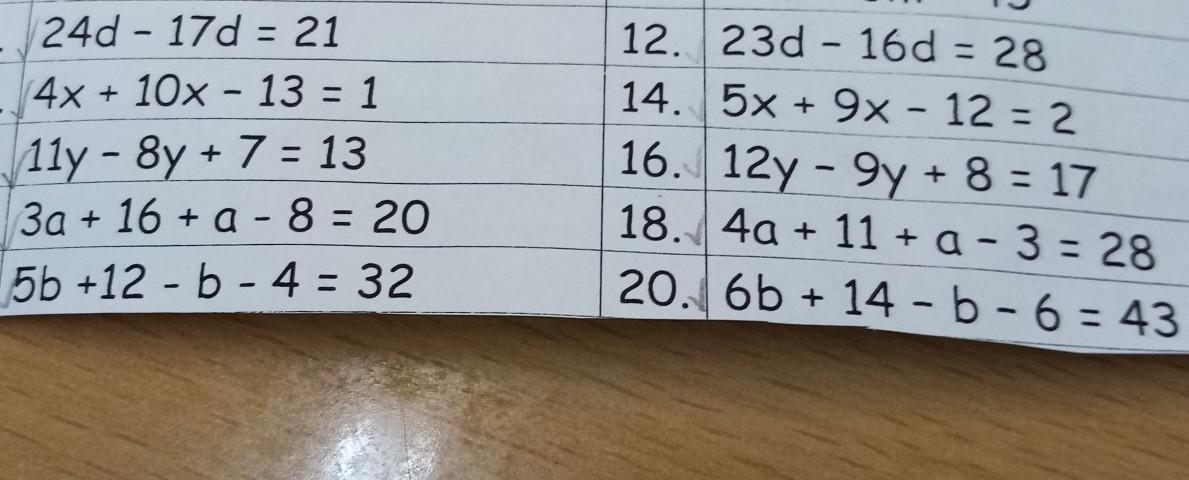 24d - 17d = 21
12. 23d - 16d = 28
4x + 10x - 13 = 1
14. 5x + 9x - 12 = 2
11y - 8y + 7 = 13
16. 12y - 9y + 8 = 17
3a + 16 + a - 8 = 20
18. 4a + 11 + a - 3 = 28
5b +12 - b - 4 = 32
20. 6b + 14 - b - 6 = 43